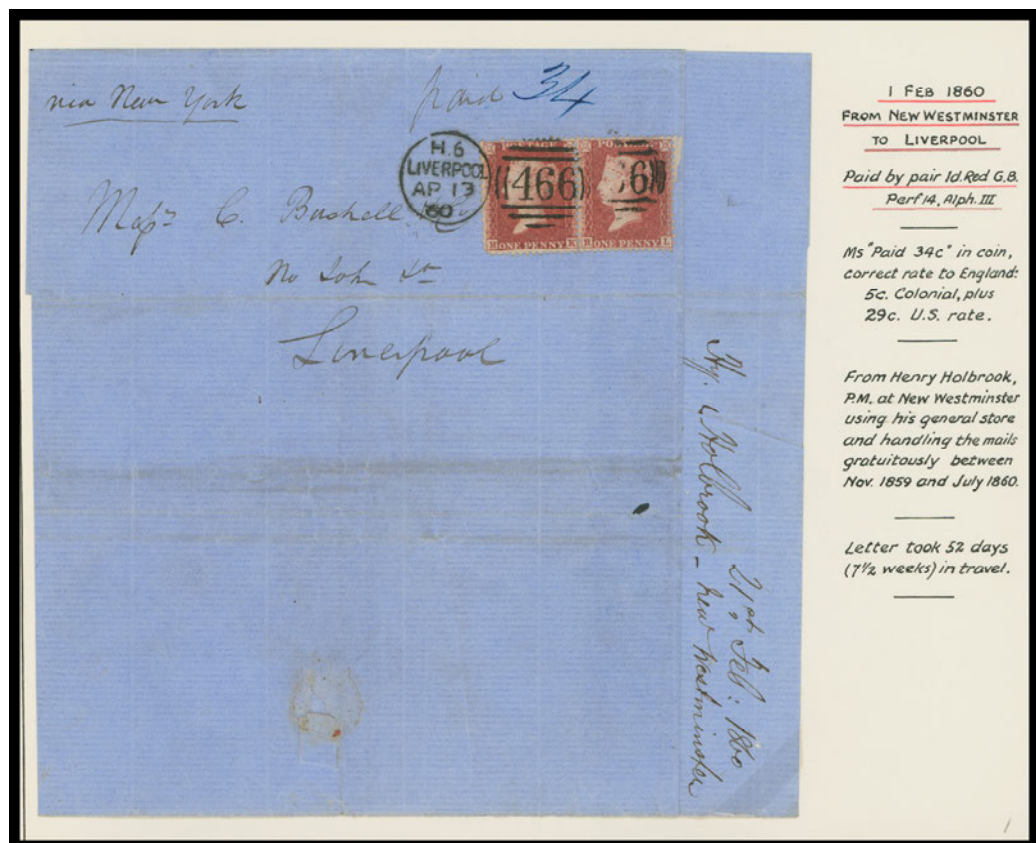 via New York
paid 34
H.6
LIVERPOOL
AP 13
60
466
66
POSTAGE
ONE PENNY
ONE PENNY
Messrs C. Bushell
Liverpool
Hy. Holbrook - New Westminster
21st Feb: 1860
1 FEB 1860
FROM NEW WESTMINSTER
TO LIVERPOOL
Paid by pair 1d. Red G.B.
Perf 14, Alph. III
Ms "Paid 34c" in coin,
correct rate to England:
5c. Colonial, plus
29c. U.S. rate.
From Henry Holbrook,
P.M. at New Westminster
using his general store
and handling the mails
gratuitously between
Nov. 1859 and July 1860.
Letter took 52 days
(7½ weeks) in travel.
1